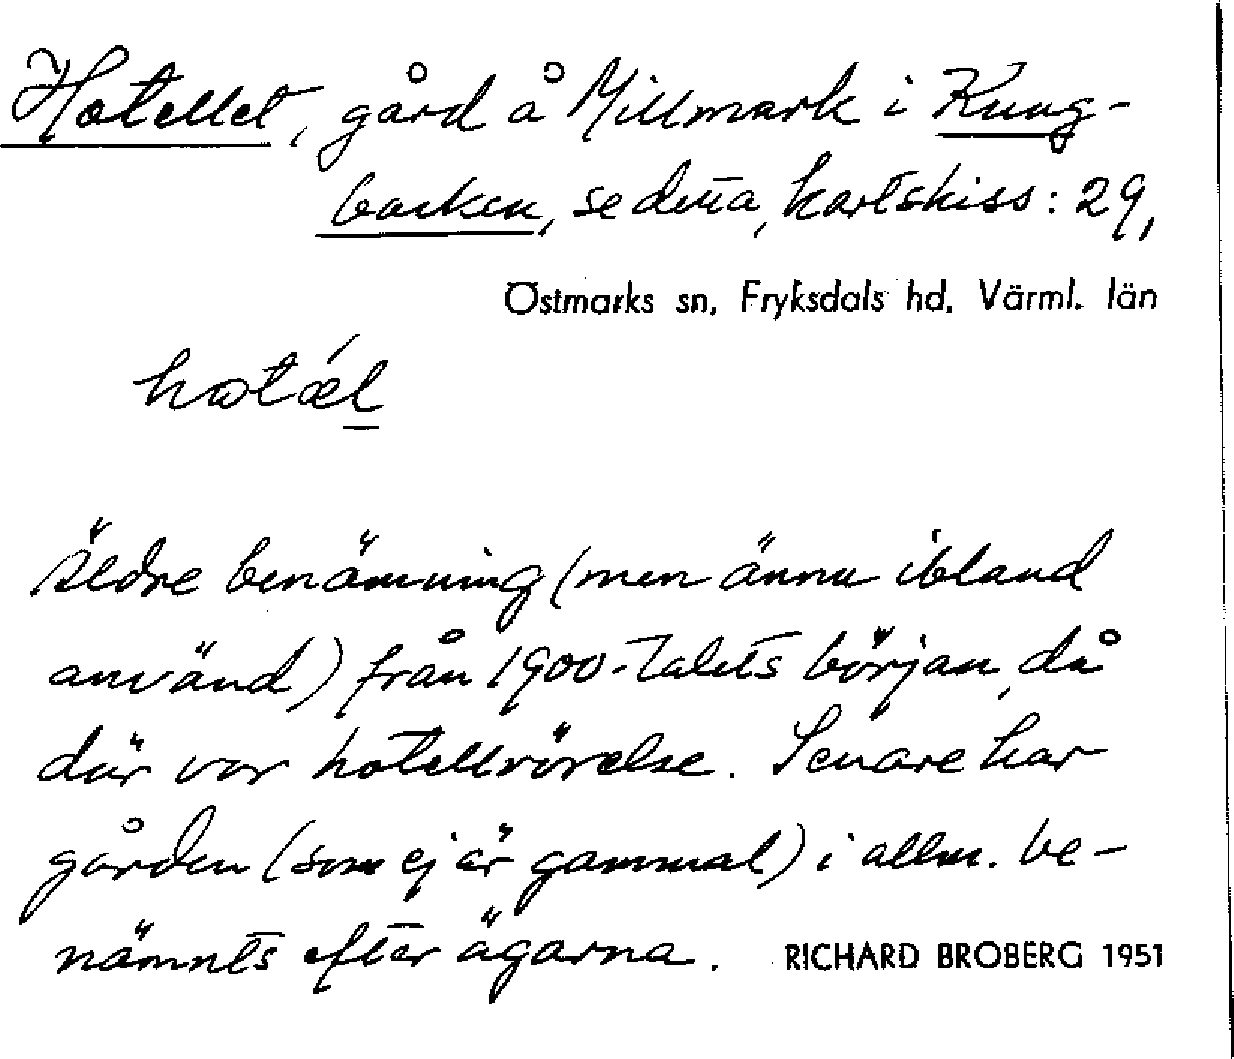 Hotellet, gård å Millmark i Kung-
backen, se detta, kartskiss: 29,
Östmarks sn, Fryksdals hd, Värml. län
hotǽl
äldre benämning (men ännu ibland
använd) från 1900-talets början, då
där var hotellrörelse. Senare har
gården (som ej är gammal) i allm. be-
nämnts efter ägarna. RICHARD BROBERG 1951